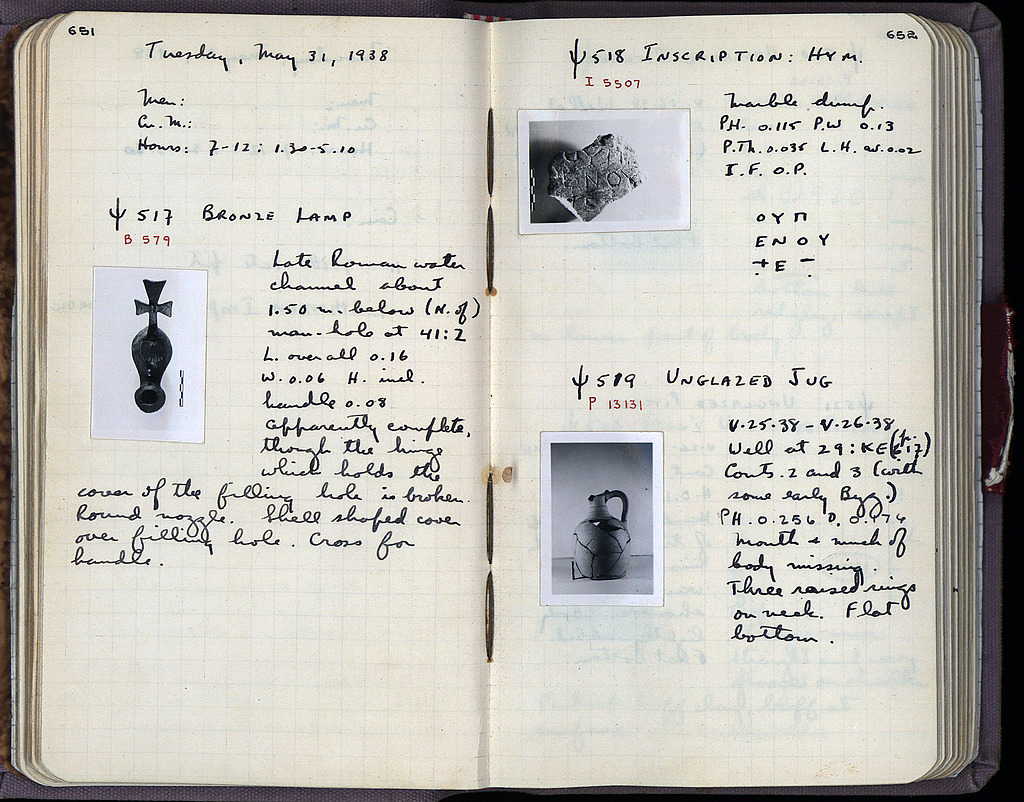 651
Tuesday, May 31, 1938
Men:
Cu. M.:
Hours: 7-12: 1.30-5.10
Ψ 517 BRONZE LAMP
B 579
Late Roman water
channel about
1.50 m. below (N. of)
man-hole at 41:Z
L. over all 0.16
W. 0.06 H. incl.
handle 0.08
Apparently complete,
though the hinge
which holds the
cover of the filling hole is broken.
Round nozzle. Shell shaped cover
over filling hole. Cross for
handle.
652
Ψ 518 INSCRIPTION: HYM.
I 5507
Marble dump.
P.H. 0.115 P.W 0.13
P.Th. 0.035 L.H. av. 0.02
I.F. O.P.
ΟΥΠ
ΕΝΟΥ
Ε
Ψ 519 UNGLAZED JUG
P 13131
V.25.38 - V.26.38
Well at 29:ΚΕ
Conts. 2 and 3 (with
some early Byz.)
P.H. 0.256 D. 0.174
Mouth & much of
body missing.
Three raised rings
on neck. Flat
bottom.